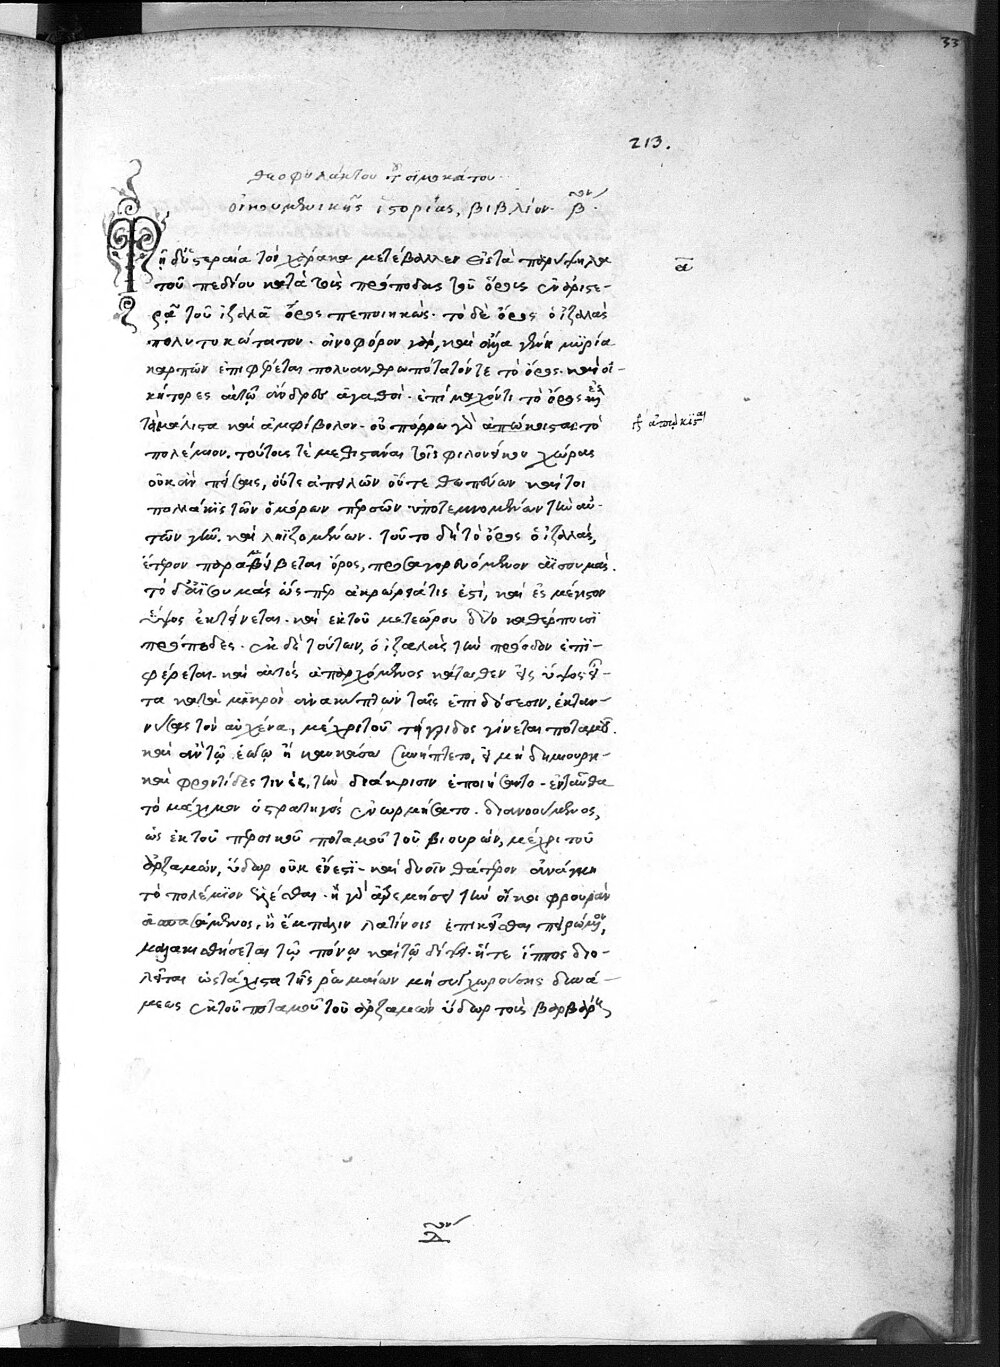 33
213.
θεοφυλάκτου τοῦ σιμοκάτου
οἰκουμενικῆς ἱστορίας, βιβλίον β.
Τῇ δ' ὑστεραία τὸν χάρακα μετέβαλλεν εἰς τὰ πάνυ ὑψηλὰ
α
τοῦ πεδίου κατὰ τοὺς πρόποδας τοῦ ὄρους ἐν ἀριστε-
ρᾷ τοῦ ἰζαλᾶ ὄρος πεποιηκώς. τὸ δὲ ὄρος ὁ ἰζαλὰς
πολυτοκώτατον. οἰνοφόρον γὰρ, καὶ ἄλλα γένη μυρία
καρπῶν ἐπιφέρεται πολυανθρωπότατόν τε τὸ ὄρος. καὶ οἰ-
κήτορες αὐτῷ ἄνδρες ἀγαθοί. ἐπίμαχόν τι τὸ ὄρος ἐς
τὰ μάλιστα καὶ ἀμφίβολον. οὐ πόρρω γὰρ ἀπώκισται τὸ
πολέμιον. τούτους τε μεθιστάναι τῆς φιλονείκου χώρας
οὐκ ἂν πείθοις, οὔτε ἀπειλῶν οὔτε θωπεύων καίτοι
πολλάκις τῶν ὁμόρων περσῶν ὑποτεμνομένων τὴν αὐ-
τῶν γῆν. καὶ ληϊζομένων. τοῦτο δὴ τὸ ὄρος ὁ ἰζαλὰς,
ἕτερον παραμείβεται ὄρος, προσαγορευόμενον αἴσουμας.
τὸ δ' αἴσουμας ὥσπερ ἀκρώρεια τίς ἐστι, καὶ ἐς μέγιστον
ὕψος ἐκτείνεται. καὶ ἐκ τοῦ μετεώρου δύο καθέρπουσι
πρόποδες. ἐκ δὲ τούτων, ὁ ἰζαλὰς τὴν πρόσοδον ἐπι-
φέρεται. καὶ αὐτὸς ἀπαρχόμενος κάτωθεν εἰς ὕψος εἶ-
τα κατὰ μικρὸν ἀνακύπτων ταῖς ἐπιδόσεσιν, ἐκταν-
νύσας τὸν αὐχένα, μέχρι τοῦ τίγριδος γίνεται ποταμοῦ.
καὶ ἂν τῷ ἑώῳ ἢ καυκάσῳ συνήπτετο, εἰ μὴ δημιουργι-
καὶ φροντίδες τινὲς, τὴν διάκρισιν ἐποιήσαντο. ἐνταῦθα
τὸ μάχιμον ὁ στρατηγὸς ἐνωρμήσατο. διανοούμενος,
ὡς ἐκ τοῦ περσικοῦ ποταμοῦ τοῦ βιουρῶν, μέχρι τοῦ
ἀρζαμῶν, ὕδωρ οὐκ ἔνεστι. καὶ δυοῖν θάτερον ἀνάγκη
τὸ πολέμιον ἑλέσθαι. ἢ γὰρ ἀρεμήσει τὴν οἴκοι φρουρὰν
ἀσπασάμενος, ἢ ἔμπαλιν λατίνοις ἐπικεῖσθαι πειρώμενον,
μαλακισθήσεται τῷ πόνῳ καὶ τῷ δίψει. ἥ τε ἵππος διο-
λεῖται ὡς τάχιστα τῆς ῥωμαίων μὴ συγχωρούσης δυνά-
μεως ἐκ τοῦ ποταμοῦ τοῦ ἀρζαμῶν ὕδωρ τοὺς βαρβάρους